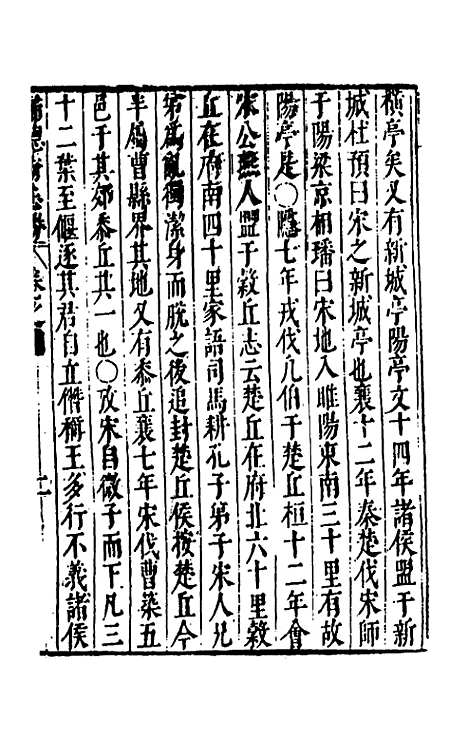 橫亭矣又有新城亭陽亭文十四年諸侯盟于新
城杜預曰宋之新城亭也襄十二年秦楚伐宋師
于陽梁京相璠曰宋地人睢陽東南三十里有故
陽亭是〇隱七年戎伐凡伯于楚丘桓十二年會
宋公燕人盟于穀丘志云楚丘在府北六十里穀
丘在府南四十里家語司馬耕孔子弟子宋人兄
弟為亂獨潔身而脫之後追封楚丘侯按楚丘今
半屬曹縣界其地又有黍丘襄七年宋伐曹築五
邑于其郊黍丘其一也〇攷宋自微子而下凡三
十二葉至偃逐其君自立僭稱王多行不義諸侯